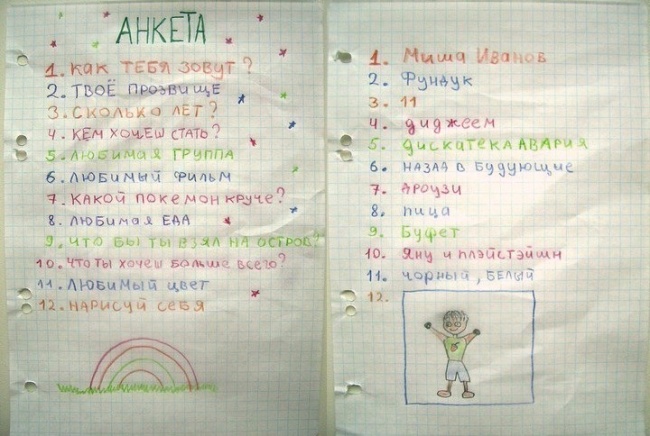 АНКЕТА
1. КАК ТЕБЯ ЗОВУТ?
2. ТВОЁ ПРОЗВИЩЕ
3. СКОЛЬКО ЛЕТ?
4. КЕМ ХОЧЕШ СТАТЬ?
5. ЛЮБИМАЯ ГРУППА
6. ЛЮБИМЫЙ ФИЛЬМ
7. КАКОЙ ПОКЕМОН КРУЧЕ?
8. ЛЮБИМАЯ ЕДА
9. ЧТО БЫ ТЫ ВЗЯЛ НА ОСТРОВ?
10. ЧТО ТЫ ХОЧЕШ БОЛЬШЕ ВСЕГО?
11. ЛЮБИМЫЙ ЦВЕТ
12. НАРИСУЙ СЕБЯ
1. Миша Иванов
2. Фундук
3. 11
4. диджеем
5. ДИСКАТЕКА АВАРИЯ
6. НАЗАА В БУДУЮЩИЕ
7. АРОУЗИ
8. пица
9. Буфет
10. Яну и плэйстэйшн
11. чорный, БЕЛЫЙ
12.